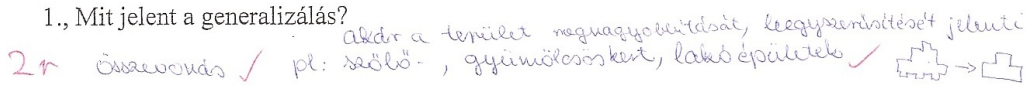 1., Mit jelent a generalizálás?
akár a terület megnagyobbítását, leegyszerűsítését jelenti
2r összevonás ✓ pl: szőlő-, gyümölcsöskert, lakóépületek ✓